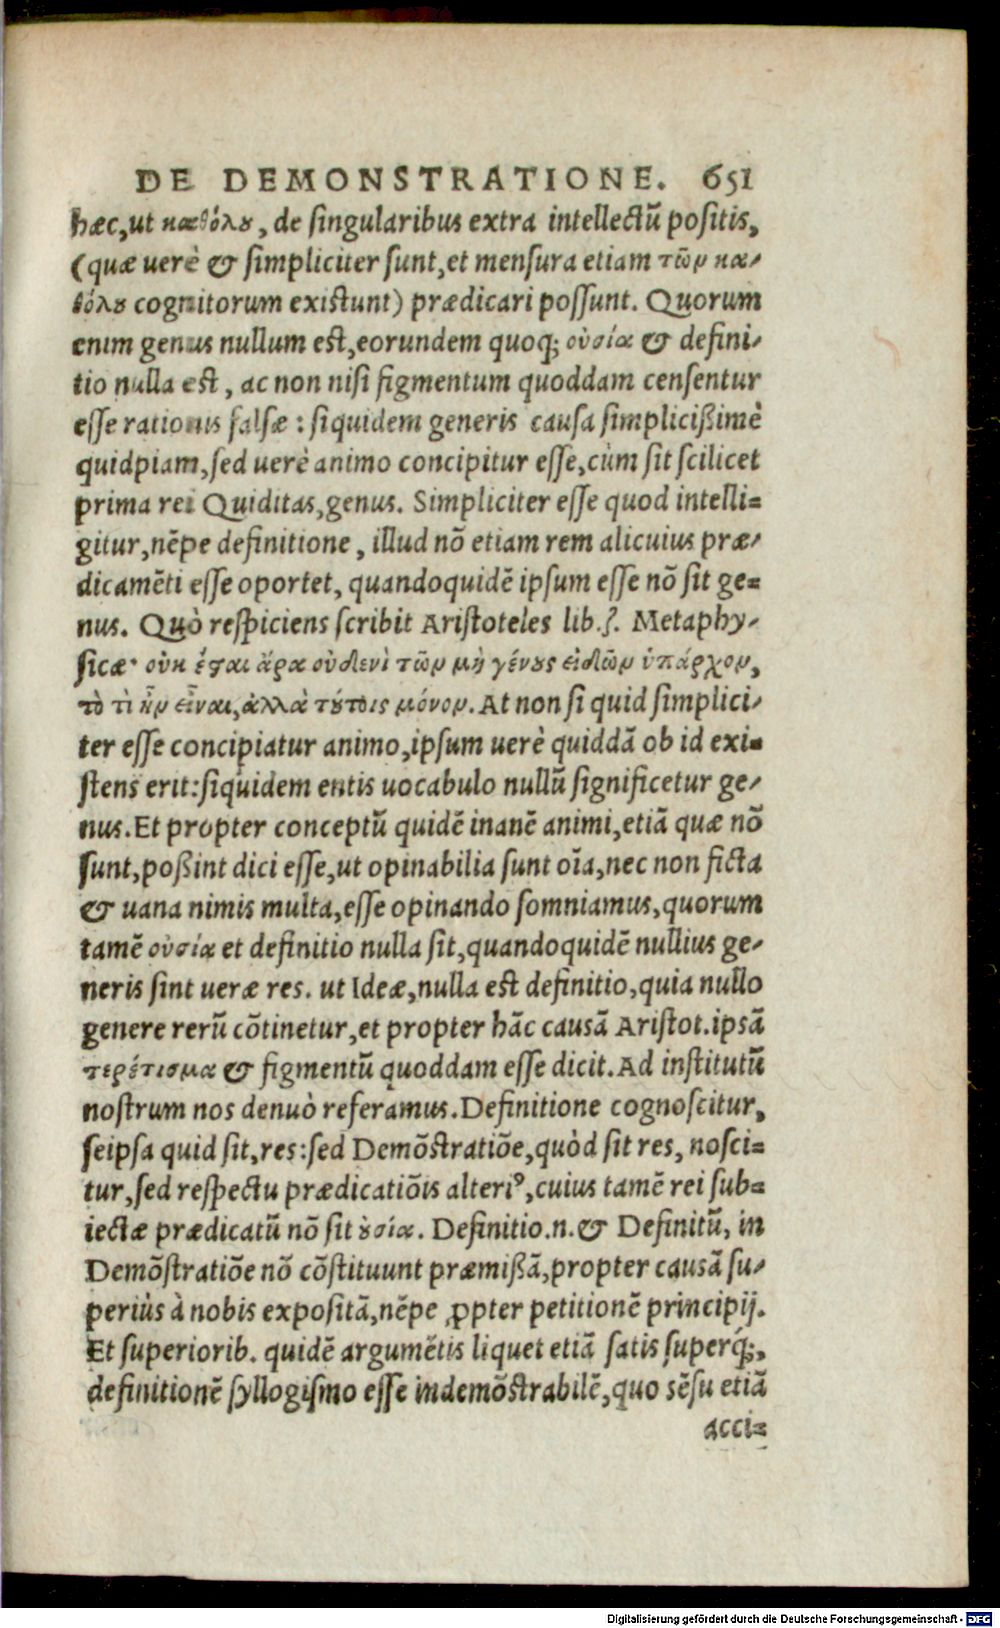 DE DEMONSTRATIONE. 651
hæc, ut καθόλου, de singularibus extra intellectũ positis,
(quæ uerè & simpliciter sunt, et mensura etiam τῶν κα-
θόλου cognitorum existunt) prædicari possunt. Quorum
enim genus nullum est, eorundem quoq; οὐσία & defini-
tio nulla est, ac non nisi figmentum quoddam censentur
esse rationis falsæ: siquidem generis causa simplicißimè
quidpiam, sed uerè animo concipitur esse, cùm sit scilicet
prima rei Quiditas, genus. Simpliciter esse quod intelli-
gitur, nẽpe definitione, illud nõ etiam rem alicuius præ-
dicamẽti esse oportet, quandoquidẽ ipsum esse nõ sit ge-
nus. Quò respiciens scribit Aristoteles lib. ʃ. Metaphy-
sicæ· οὐκ ἔσται ἄρα οὐδενὶ τῶν μὴ γένους εἰδῶν ὑπάρχον,
τὸ τὶ ἦν εἶναι, ἀλλὰ τούτοις μόνον. At non si quid simplici-
ter esse concipiatur animo, ipsum uerè quiddã ob id exi-
stens erit: siquidem entis uocabulo nullũ significetur ge-
nus. Et propter conceptũ quidẽ inanẽ animi, etiã quæ nõ
sunt, poßint dici esse, ut opinabilia sunt oĩa, nec non ficta
& uana nimis multa, esse opinando somniamus, quorum
tamẽ οὐσία et definitio nulla sit, quandoquidẽ nullius ge-
neris sint ueræ res. ut Ideæ, nulla est definitio, quia nullo
genere rerũ cõtinetur, et propter hãc causã Aristot. ipsã
τερέτισμα & figmentũ quoddam esse dicit. Ad institutũ
nostrum nos denuò referamus. Definitione cognoscitur,
seipsa quid sit, res: sed Demõstratiõe, quòd sit res, nosci-
tur, sed respectu prædicatiõis alteriꝰ, cuius tamẽ rei sub-
iectæ prædicatũ nõ sit ȣσία. Definitio .n. & Definitũ, in
Demõstratiõe nõ cõstituunt præmißã, propter causã su-
periùs à nobis expositã, nẽpe ꝓpter petitionẽ principij.
Et superiorib. quidẽ argumẽtis liquet etiã satis superq́;,
definitionẽ syllogismo esse indemõstrabilẽ, quo sẽsu etiã
acci-
Digitalisierung gefördert durch die Deutsche Forschungsgemeinschaft - DFG